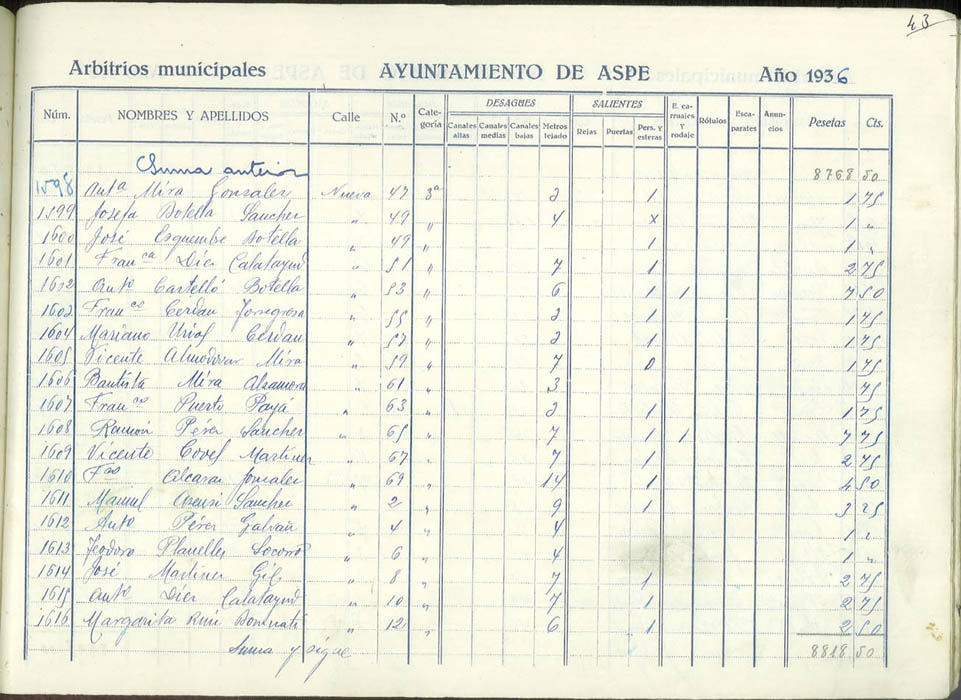 43
Arbitrios municipales AYUNTAMIENTO DE ASPE Año 1936
Núm. NOMBRES Y APELLIDOS Calle N.º Cate-goría DESAGÜES Canales altas Canales medias Canales bajas Metros tejado SALIENTES Rejas Puertas Pers. y esteras E. ca-rruajes y rodaje Rótulos Esca-parates Anun-cios Pesetas Cts.
Suma anterior 8768 50
1598 Antª Mira Gonzalez Nueva 47 3ª 2 1 1 75
1599 Josefa Botella Sancher " 49 " 4 x 1 "
1600 José Esquembe Botella " 49 " 1 1 "
1601 Franca Dier Calatayud " 51 " 7 1 2 75
1602 Anto Castelló Botella " 53 " 6 1 1 7 50
1603 Franco Cerdan Torregrosa " 55 " 2 1 1 75
1604 Mariano Cerdan " 57 " 2 1 1 75
1605 Vicente Almodovar Mira " 59 " 7 0 1 75
1606 Bautista Mira Alzamora " 61 " 3 75
1607 Franco Puerto Payá " 63 " 2 1 1 75
1608 Ramón Pérez Sancher " 65 " 7 1 1 7 75
1609 Vicente Martinez " 67 " 7 1 2 75
1610 Fco Alcaraz Gonzalez " 69 " 14 1 4 50
1611 Manuel Asensi Sancher " 2 " 9 1 3 25
1612 Anto Pérez Galvañ " 4 " 4 1 "
1613 Teodoro Planelles Socorro " 6 " 4 1 "
1614 José Martinez Gil " 8 " 7 1 2 75
1615 Anto Dier Calatayud " 10 " 7 1 2 75
1616 Margarita " 12 " 6 1 2 50
Suma y sigue 8818 50